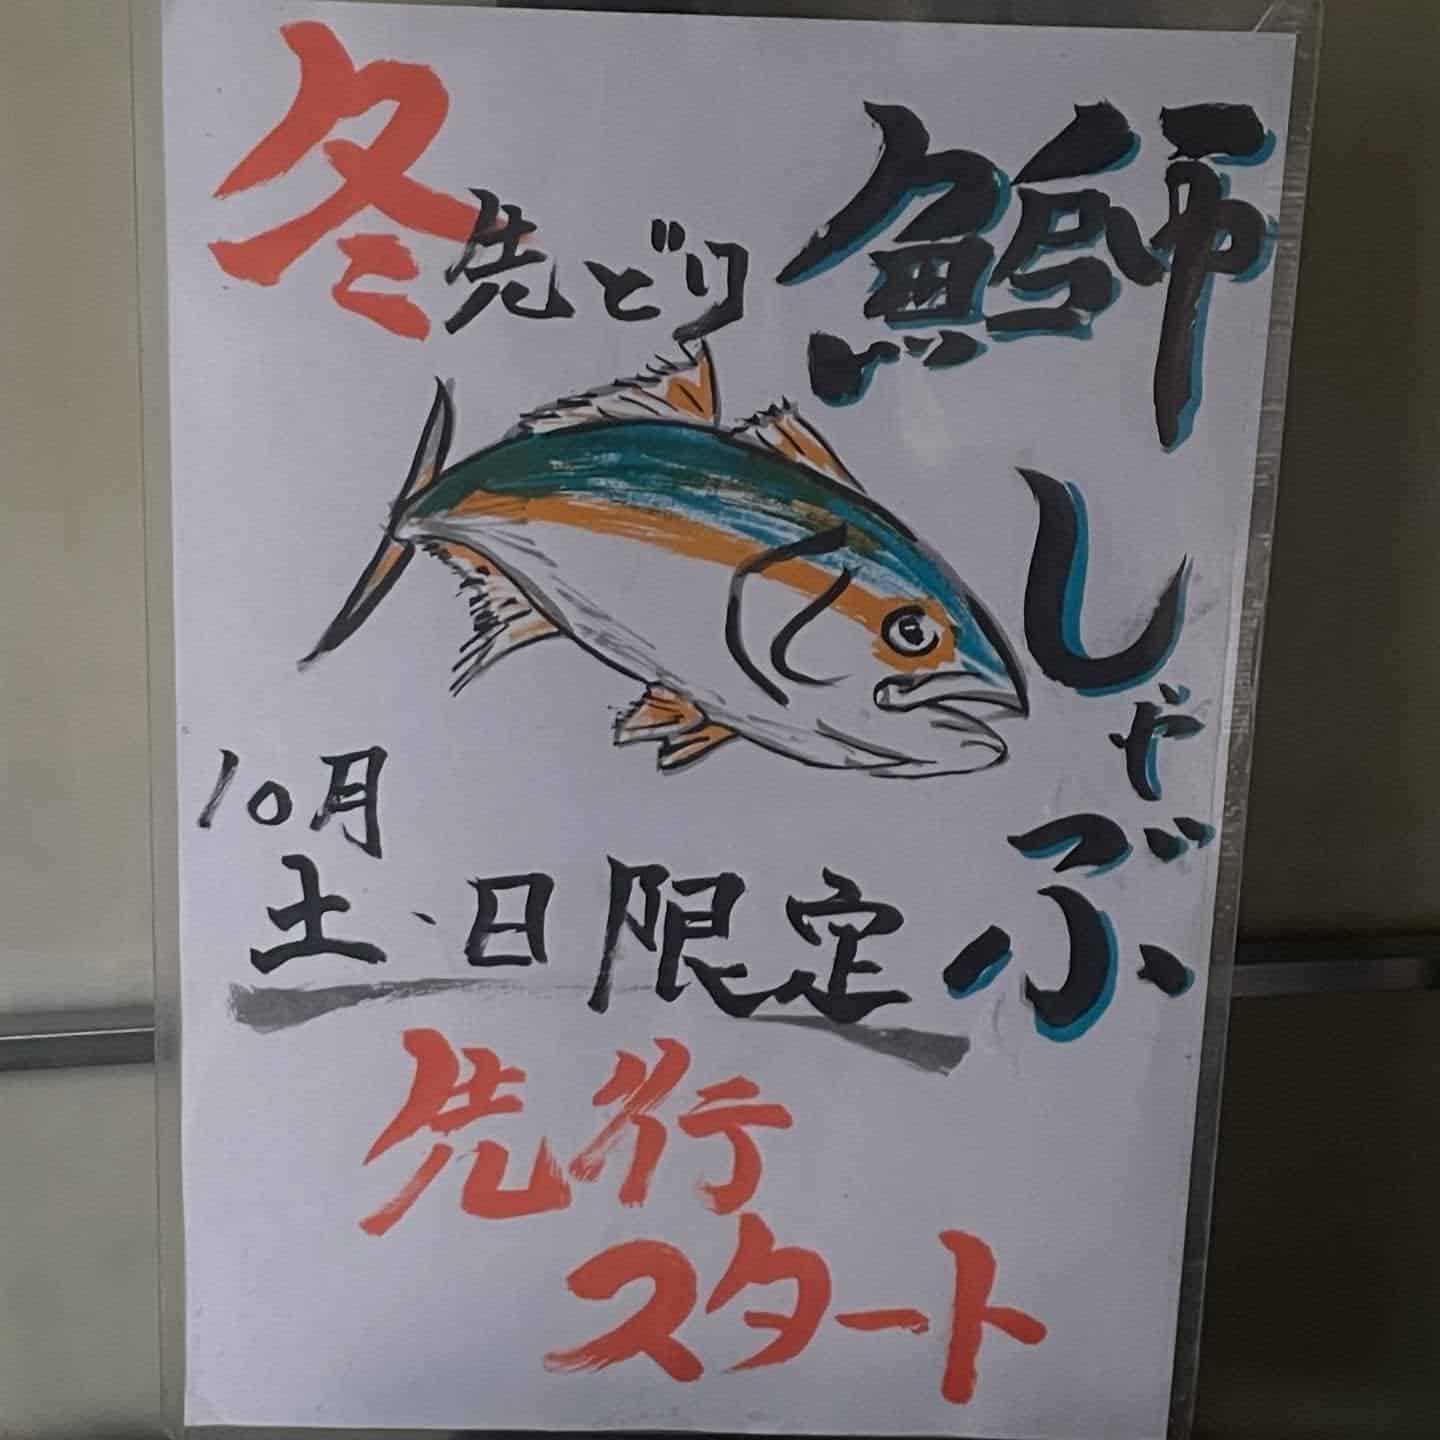 冬先どり
鰤しゃぶ
10月
土、日限定
先行
スタート